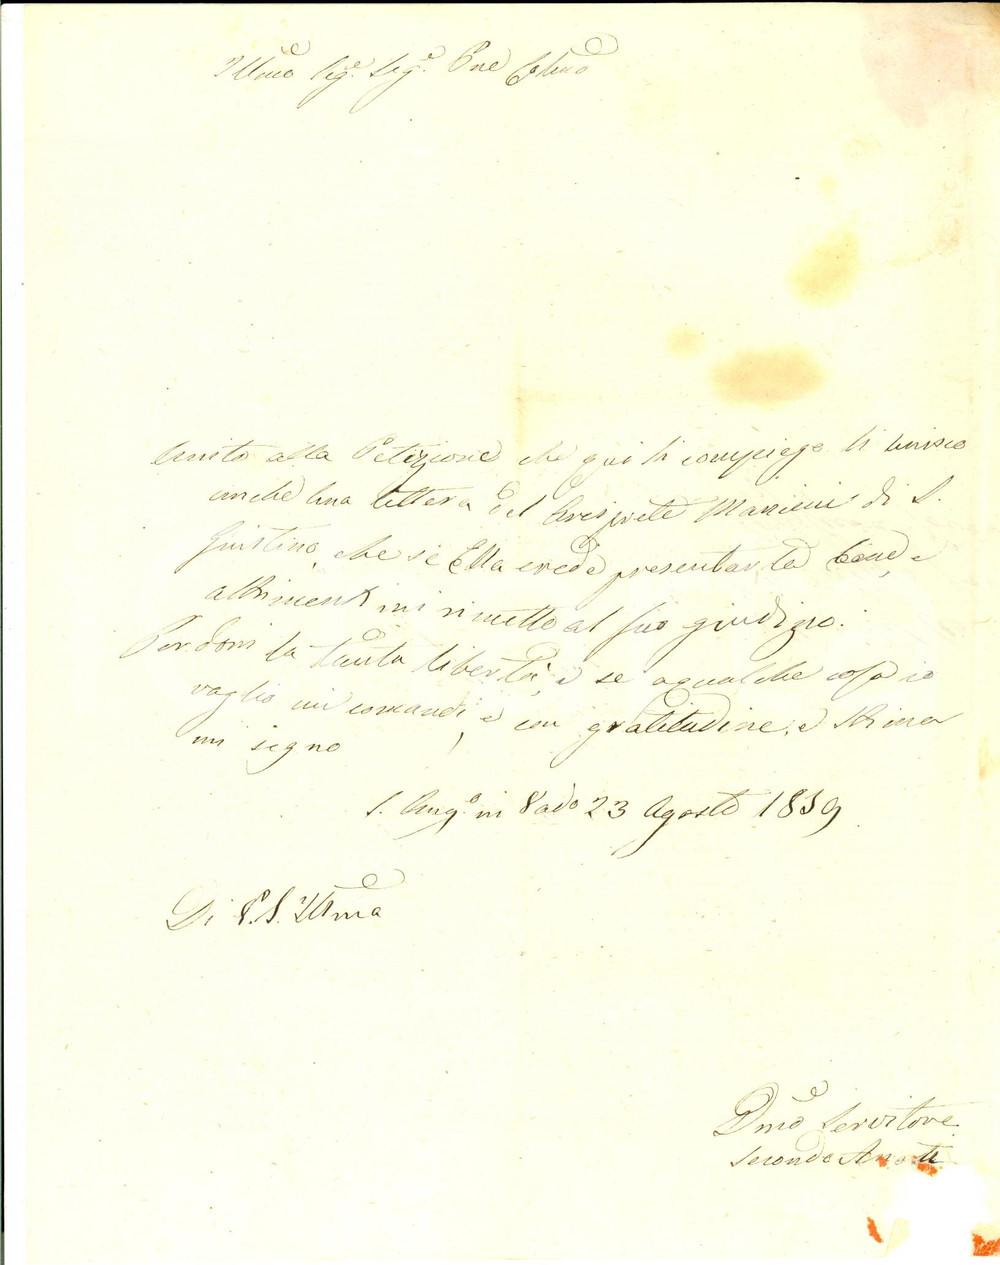 Illmo Sig.e Sig.e Pne Colmo
Unito alla Petizione che qui Li compiego Li unisco
anche una lettera del Arciprete Mancini di S.
Giustino, che se Ella crede presentarla bene, e
altrimenti mi rimetto al suo giudizio.
Perdoni la tanta libertà, e se a qualche cosa io
vaglio mi comandi, e con gratitudine, e stima
mi segno
S. Ang.o in Vado 23 Agosto 1859
Di V.S. Illma
Dmo Servitore
Secondo